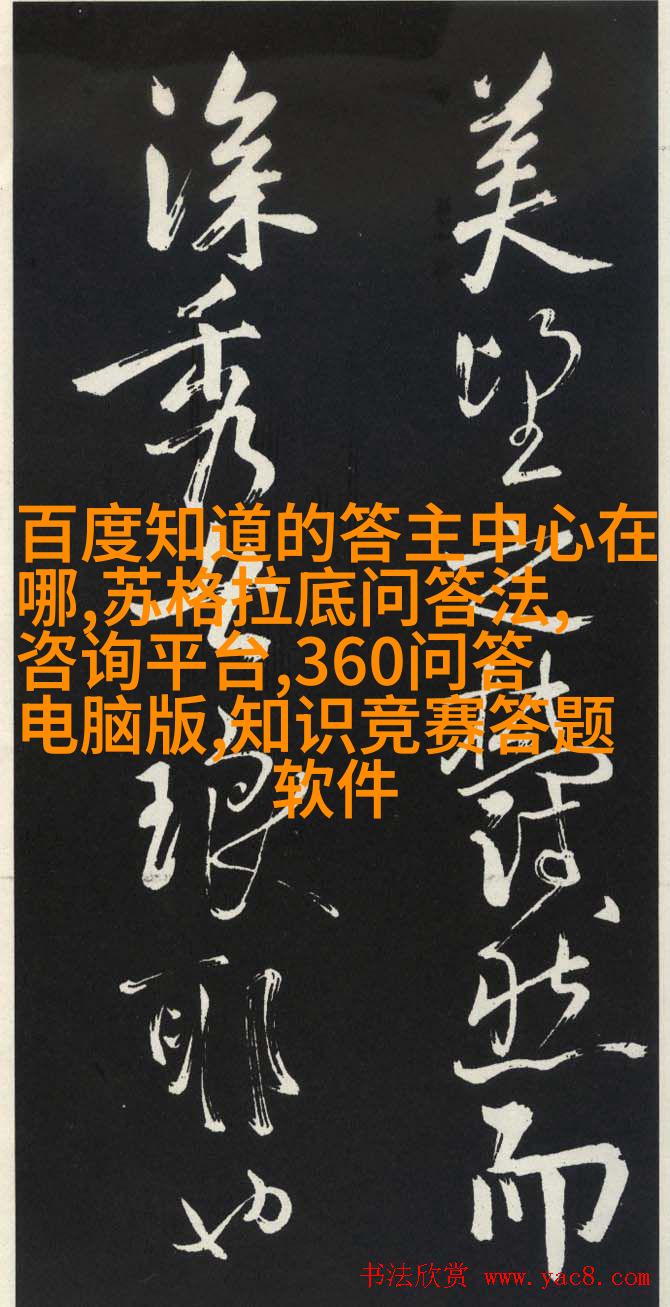 美望之蔚然而
深秀者琅耶也
百度知道的答主中心在
哪,苏格拉底问答法,
咨询平台,360问答
电脑版,知识竞赛答题
软件
书法欣赏 www.yac8.com